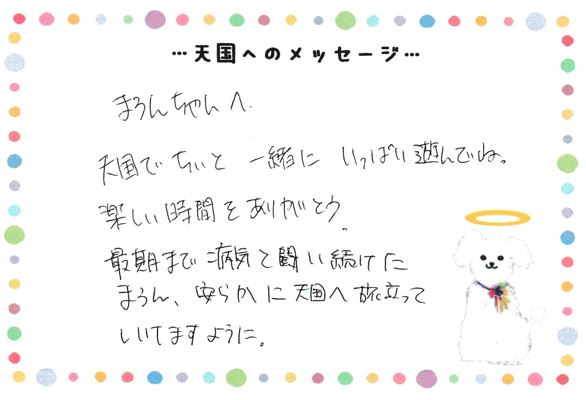 …天国へのメッセージ…
まろんちゃんへ.
天国でちぃと 一緒に いっぱい遊んでね。
楽しい時間をありがとう。
最期まで病気と闘い続けた
まろん、安らかに天国へ旅立って
いけますように。